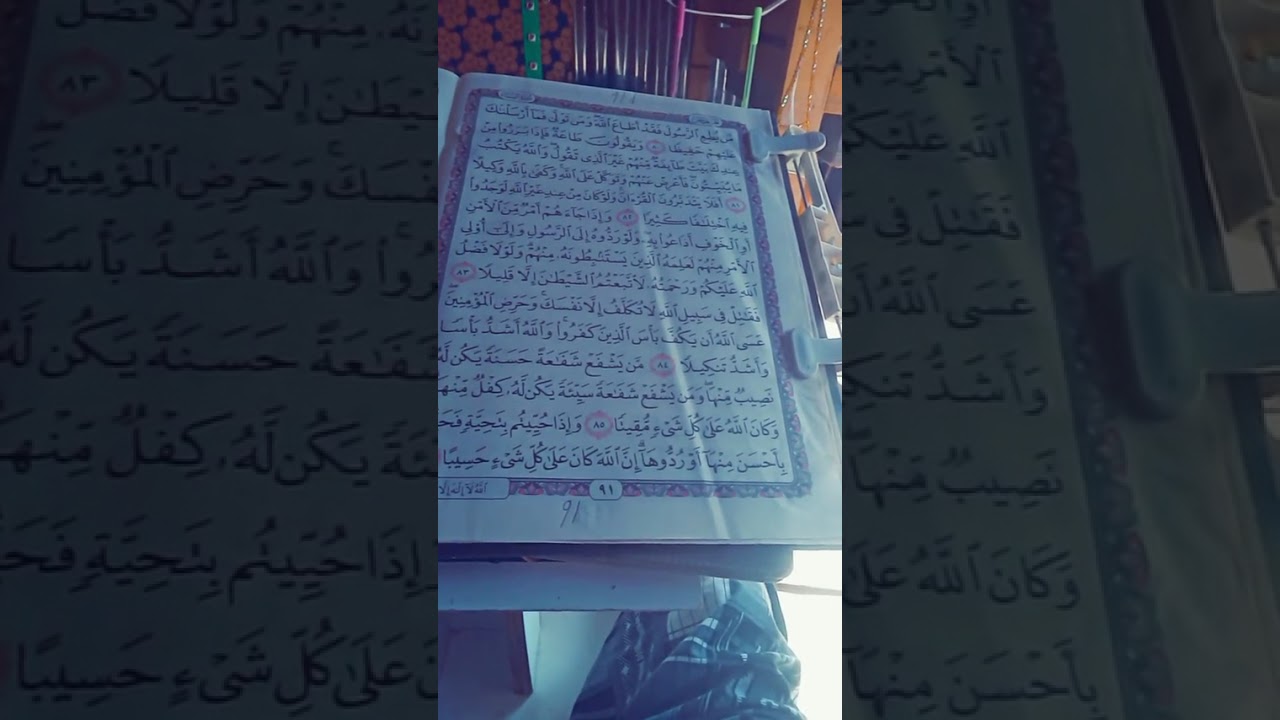 مَّن يُطِعِ ٱلرَّسُولَ فَقَدْ أَطَاعَ ٱللَّهَ وَمَن تَوَلَّىٰ فَمَآ أَرْسَلْنَٰكَ
عَلَيْهِمْ حَفِيظًا ٨٠ وَيَقُولُونَ طَاعَةٌ فَإِذَا بَرَزُوا۟ مِنْ
عِندِكَ بَيَّتَ طَآئِفَةٌ مِّنْهُمْ غَيْرَ ٱلَّذِى تَقُولُ وَٱللَّهُ يَكْتُبُ
مَا يُبَيِّتُونَ فَأَعْرِضْ عَنْهُمْ وَتَوَكَّلْ عَلَى ٱللَّهِ وَكَفَىٰ بِٱللَّهِ وَكِيلًا
٨١ أَفَلَا يَتَدَبَّرُونَ ٱلْقُرْءَانَ وَلَوْ كَانَ مِنْ عِندِ غَيْرِ ٱللَّهِ لَوَجَدُوا۟
فِيهِ ٱخْتِلَٰفًا كَثِيرًا ٨٢ وَإِذَا جَآءَهُمْ أَمْرٌ مِّنَ ٱلْأَمْنِ
أَوِ ٱلْخَوْفِ أَذَاعُوا۟ بِهِۦ وَلَوْ رَدُّوهُ إِلَى ٱلرَّسُولِ وَإِلَىٰٓ أُو۟لِى
ٱلْأَمْرِ مِنْهُمْ لَعَلِمَهُ ٱلَّذِينَ يَسْتَنۢبِطُونَهُۥ مِنْهُمْ وَلَوْلَا فَضْلُ
ٱللَّهِ عَلَيْكُمْ وَرَحْمَتُهُۥ لَٱتَّبَعْتُمُ ٱلشَّيْطَٰنَ إِلَّا قَلِيلًا ٨٣
فَقَٰتِلْ فِى سَبِيلِ ٱللَّهِ لَا تُكَلَّفُ إِلَّا نَفْسَكَ وَحَرِّضِ ٱلْمُؤْمِنِينَ
عَسَى ٱللَّهُ أَن يَكُفَّ بَأْسَ ٱلَّذِينَ كَفَرُوا۟ وَٱللَّهُ أَشَدُّ بَأْسًا
وَأَشَدُّ تَنكِيلًا ٨٤ مَّن يَشْفَعْ شَفَٰعَةً حَسَنَةً يَكُن لَّهُۥ
نَصِيبٌ مِّنْهَا وَمَن يَشْفَعْ شَفَٰعَةً سَيِّئَةً يَكُن لَّهُۥ كِفْلٌ مِّنْهَا
وَكَانَ ٱللَّهُ عَلَىٰ كُلِّ شَىْءٍ مُّقِيتًا ٨٥ وَإِذَا حُيِّيتُم بِتَحِيَّةٍ فَحَ
بِأَحْسَنَ مِنْهَآ أَوْ رُدُّوهَآ إِنَّ ٱللَّهَ كَانَ عَلَىٰ كُلِّ شَىْءٍ حَسِيبًا
٩١
ٱللَّهُ لَآ إِلَٰهَ إِلَّا
91